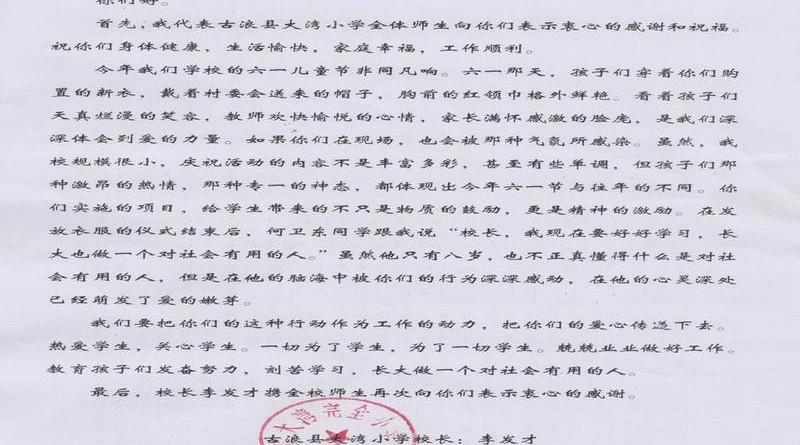 你们好。
首先，我代表古浪县大湾小学全体师生向你们表示衷心的感谢和祝福。
祝你们身体健康，生活愉快，家庭幸福，工作顺利。
今年我们学校的六一儿童节非同凡响。六一那天，孩子们穿着你们购
置的新衣，戴着村委会送来的帽子，胸前的红领巾格外鲜艳。看着孩子们
天真烂漫的笑容，教师欢快愉悦的心情，家长满怀感激的脸庞，是我们深
深体会到爱的力量。如果你们在现场，也会被那种气氛所感染。虽然，我
校规模很小，庆祝活动的内容不是丰富多彩，甚至有些单调，但孩子们那
种激昂的热情，那种专一的神态，都体现出今年六一节与往年的不同。你
们实施的项目，给学生带来的不只是物质的鼓励，更是精神的激励。在发
放衣服的仪式结束后，何卫东同学跟我说“校长，我现在要好好学习，长
大也做一个对社会有用的人。”虽然他只有八岁，也不正真懂得什么是对社
会有用的人，但是在他的脑海中被你们的行为深深感动，在他的心灵深处
已经萌发了爱的嫩芽。
我们要把你们的这种行动作为工作的动力，把你们的爱心传递下去。
热爱学生，关心学生。一切为了学生，为了一切学生。兢兢业业做好工作。
教育孩子们发奋努力，刻苦学习，长大做一个对社会有用的人。
最后，校长李发才携全校师生再次向你们表示衷心的感谢。
大湾完全小
古浪县大湾小学校长：李发才